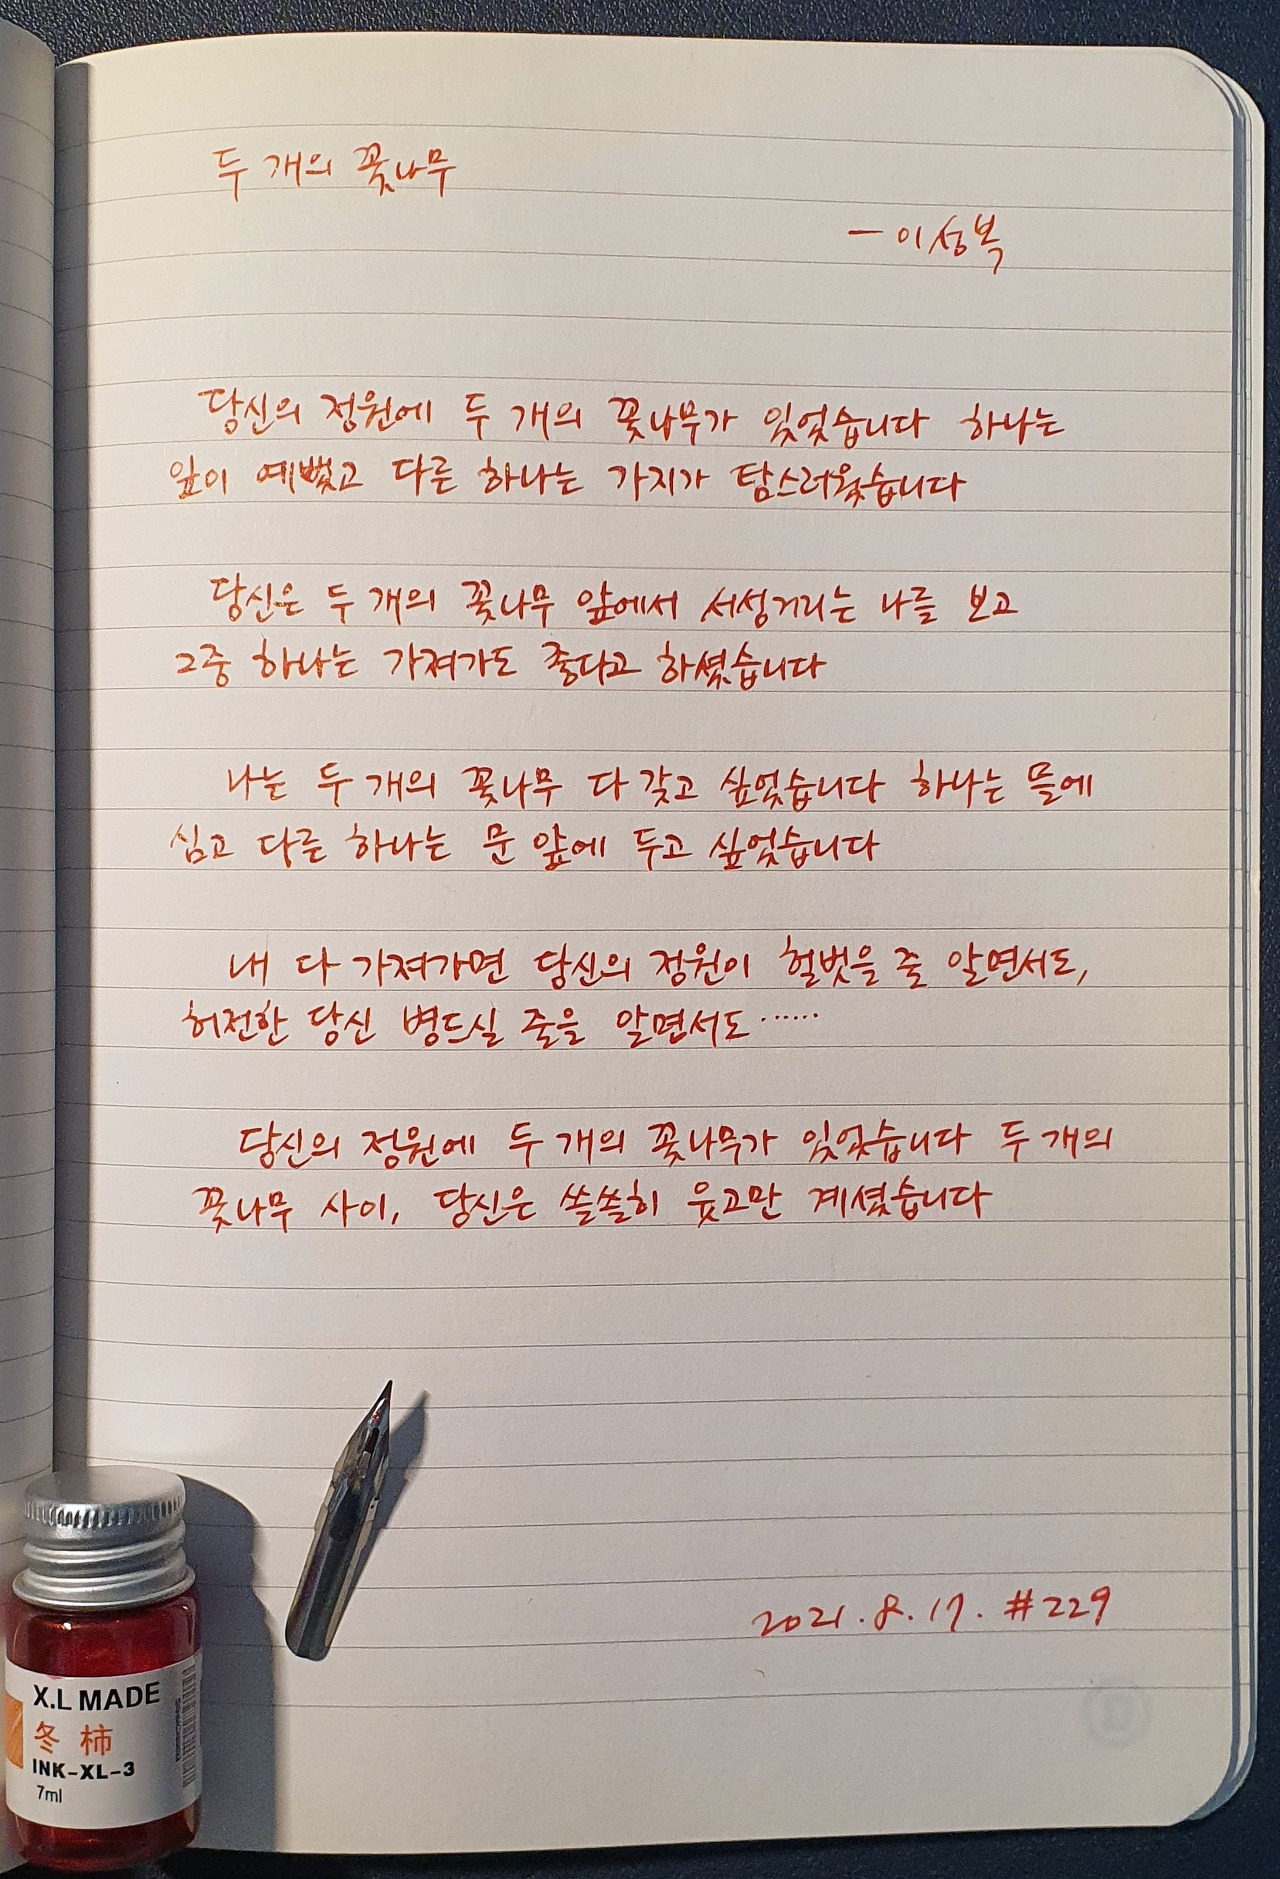 두 개의 꽃나무
- 이성복
당신의 정원에 두 개의 꽃나무가 있었습니다 하나는
잎이 예뻤고 다른 하나는 가지가 탐스러웠습니다
당신은 두 개의 꽃나무 앞에서 서성거리는 나를 보고
그중 하나는 가져가도 좋다고 하셨습니다
나는 두 개의 꽃나무 다 갖고 싶었습니다 하나는 뜰에
심고 다른 하나는 문 앞에 두고 싶었습니다
내 다 가져가면 당신의 정원이 헐벗을 줄 알면서도,
허전한 당신 병드실 줄을 알면서도……
당신의 정원에 두 개의 꽃나무가 있었습니다 두 개의
꽃나무 사이, 당신은 쓸쓸히 웃고만 계셨습니다
2021.8.17. #229
X.L MADE
冬柿
INK-XL-3
7ml